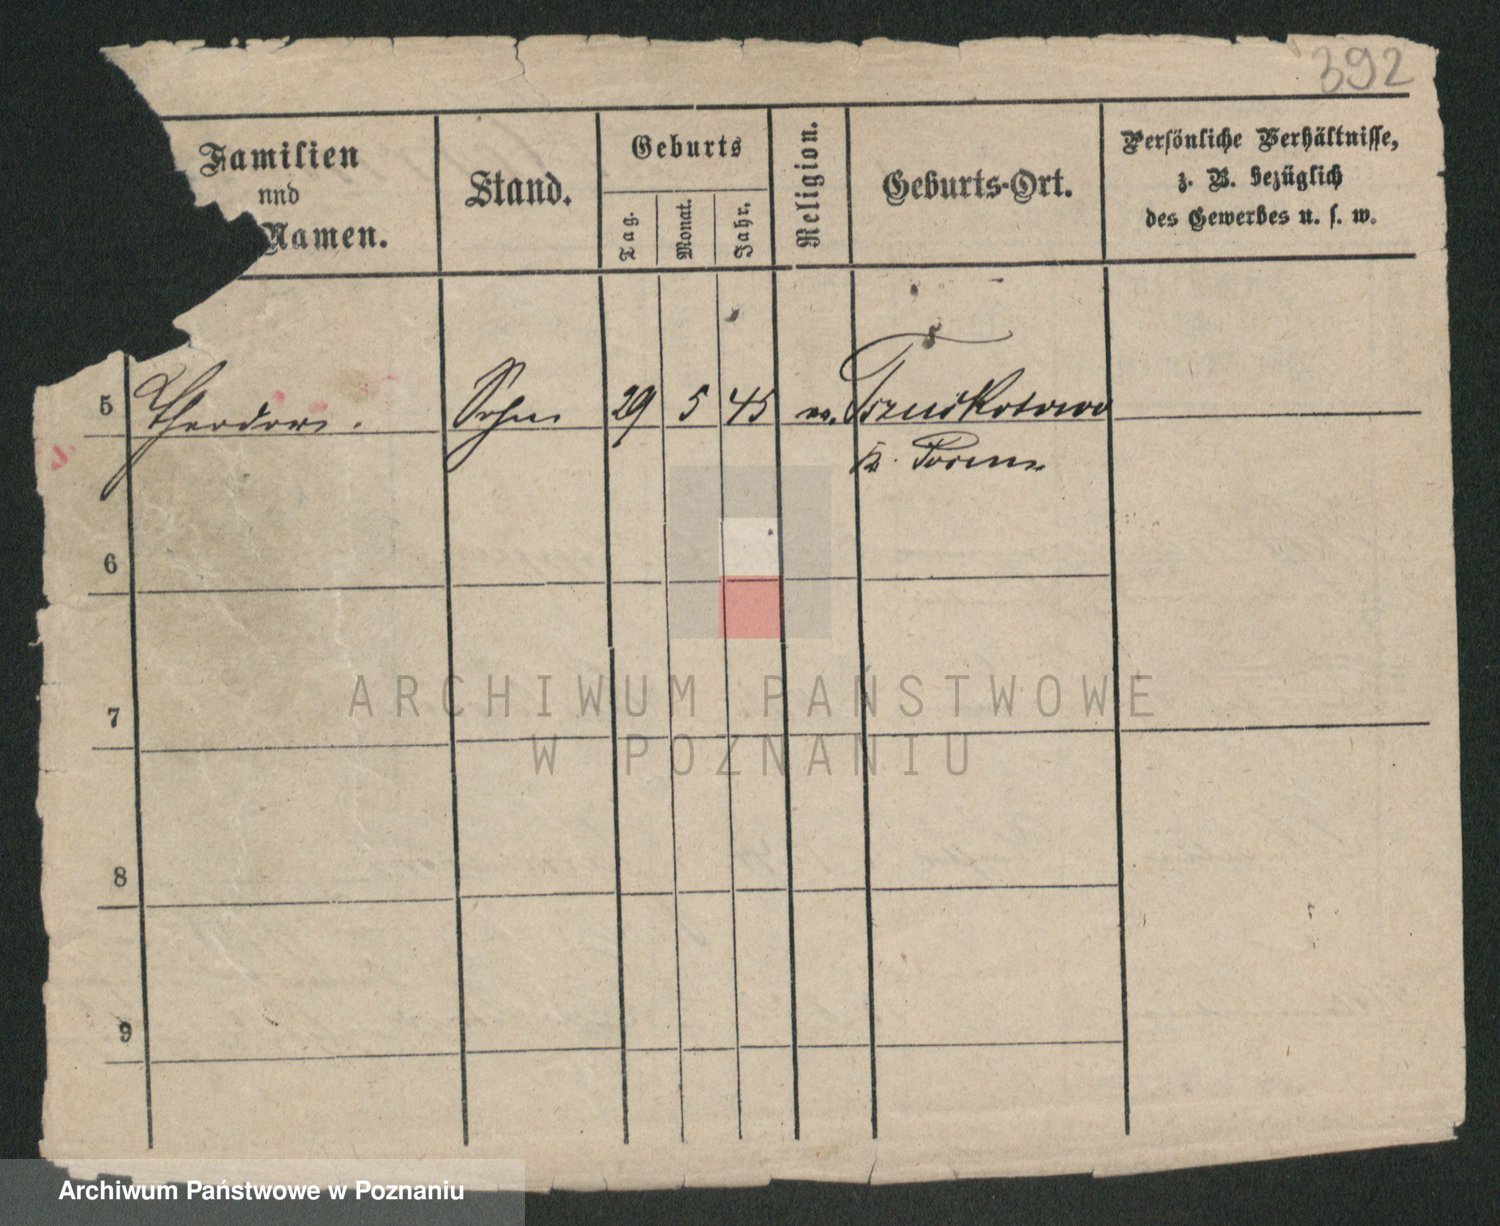 392
Familien
und
Namen.
Stand.
Geburts
Tag.
Monat.
Jahr.
Religion.
Geburts-Ort.
Persönliche Verhältnisse,
z. B. bezüglich
des Gewerbes u. s. w.
5 Theodor. Sohn 29 5 45
6
7
8
9
ARCHIWUM PAŃSTWOWE
W POZNANIU
Archiwum Państwowe w Poznaniu